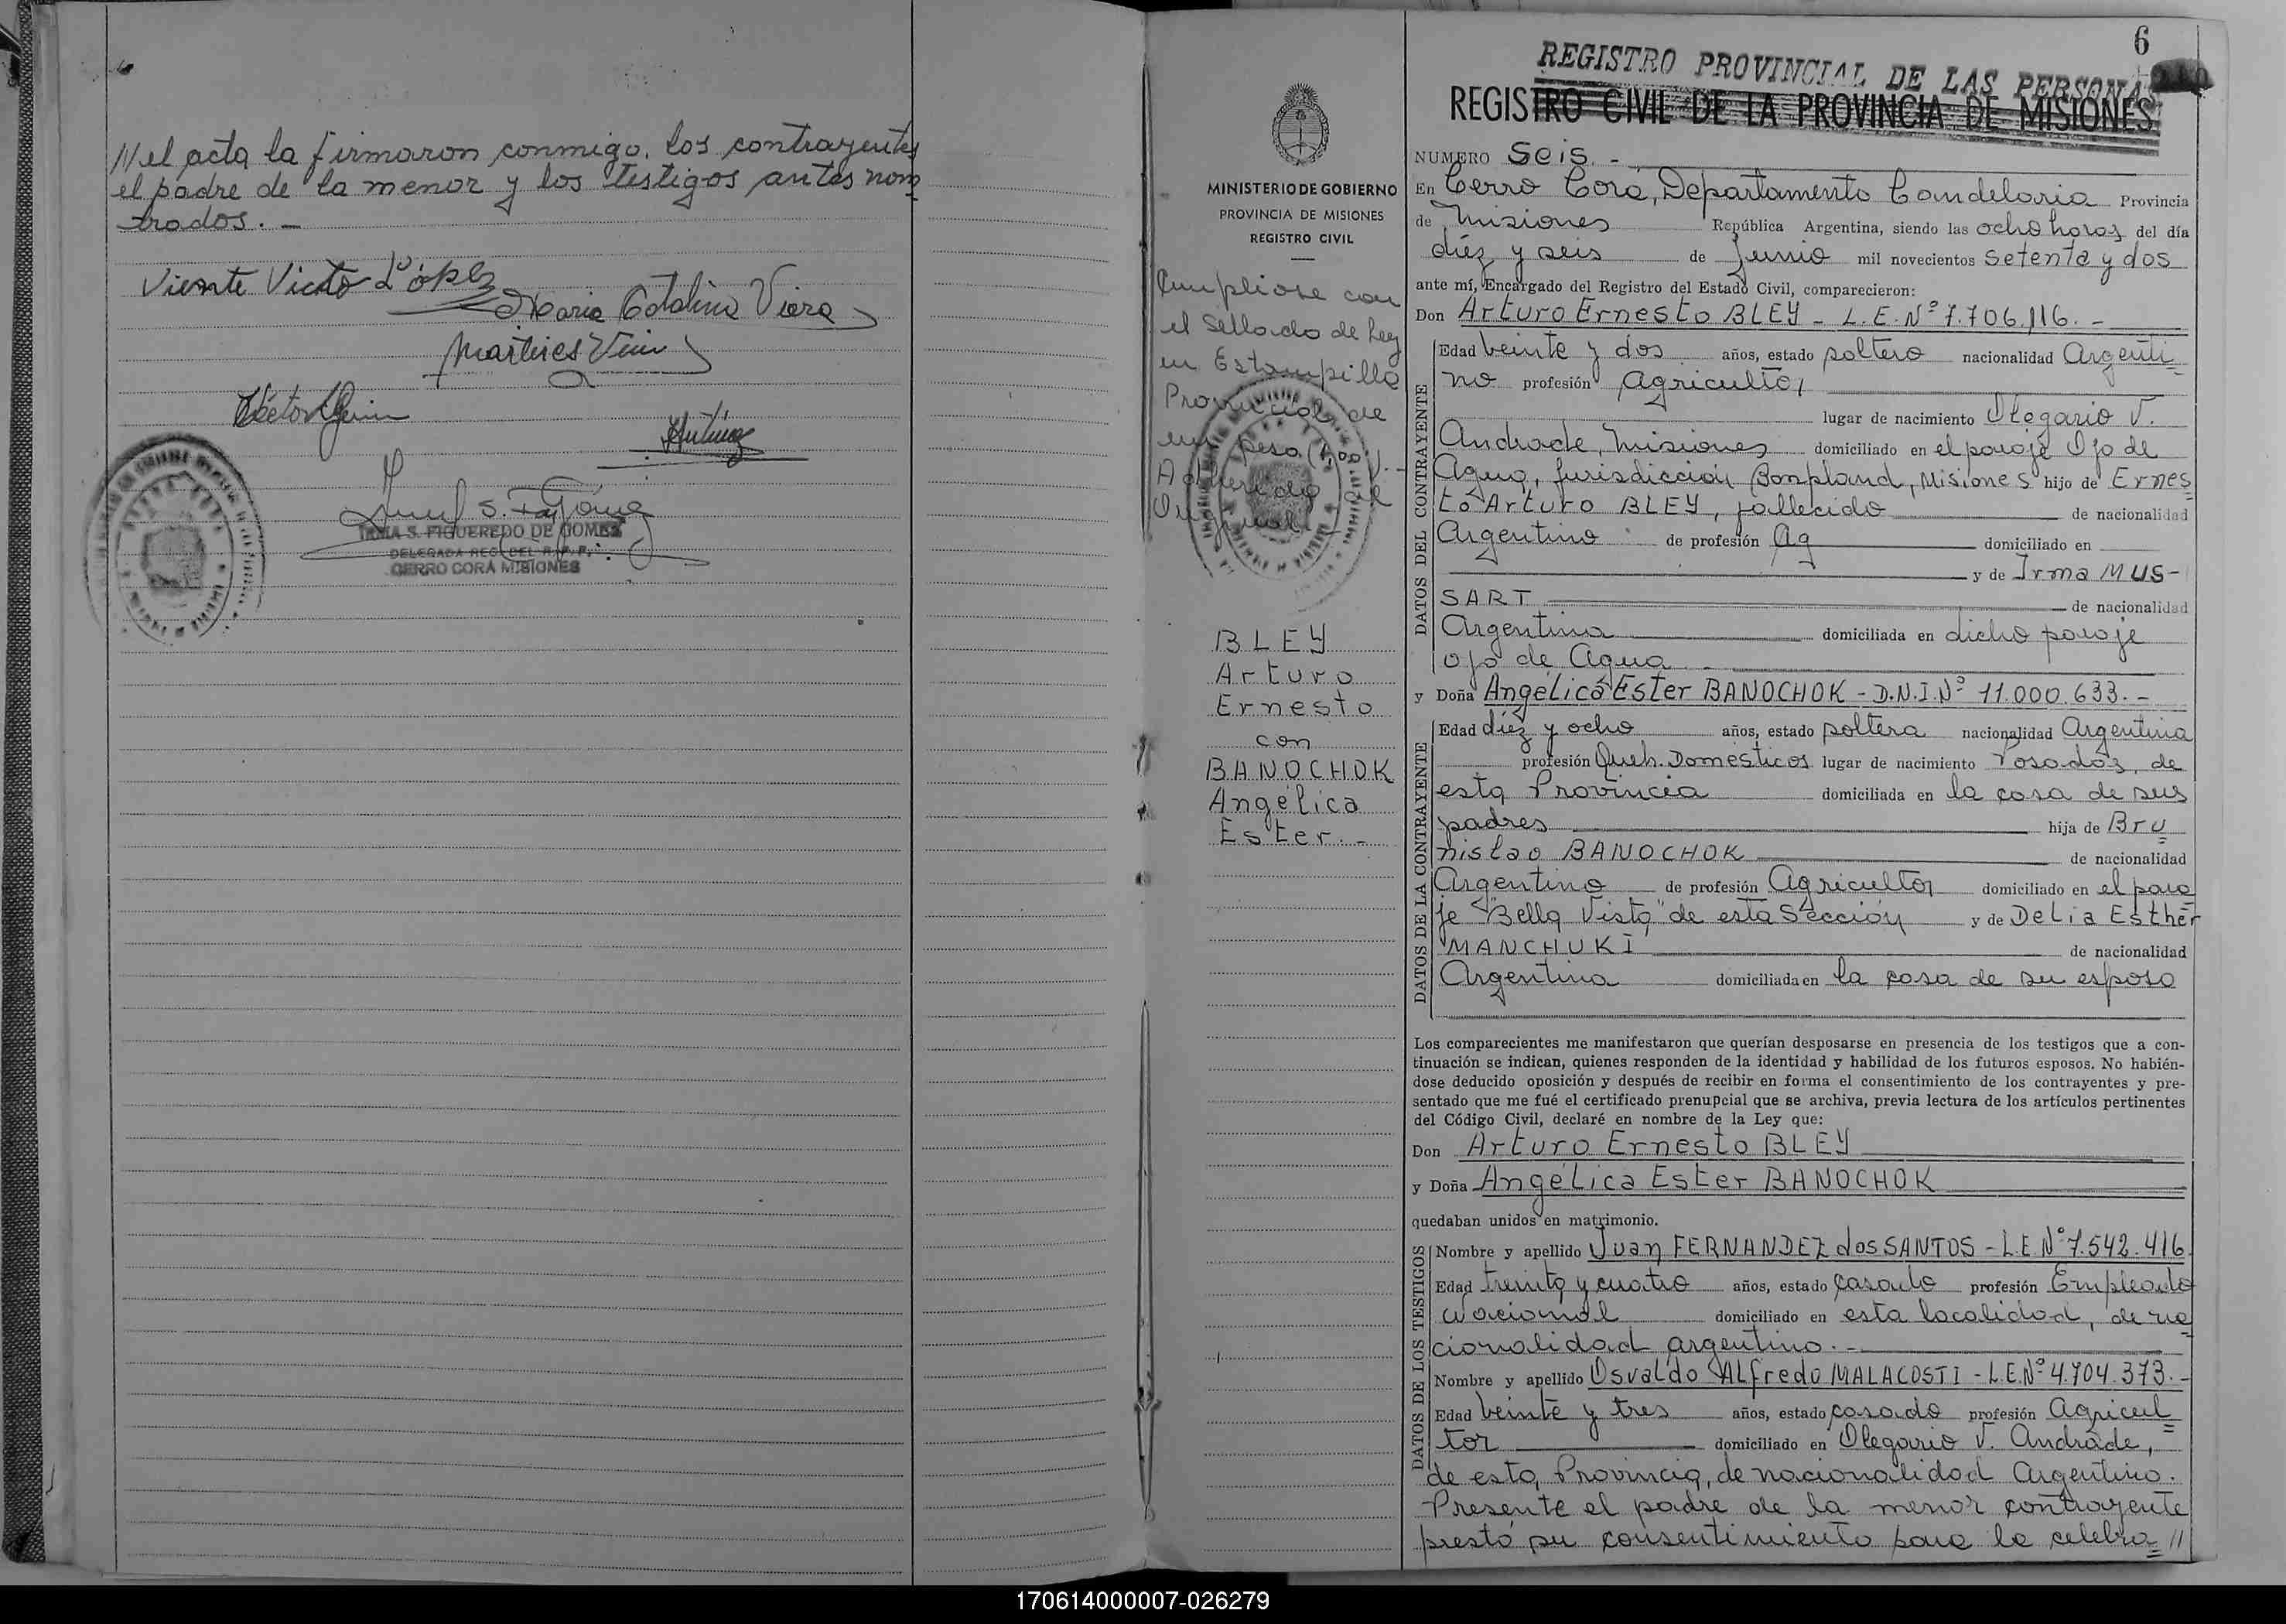 /// el acta la firmaron conmigo, los contrayentes
el padre de la menor y los testigos antes nom
brados. -
Vicente Victo López
Maria Catalina Viera
IRMA S. FIGUEREDO DE GOMEZ
DELEGADA REG. DEL R.P.P.
CERRO CORA MISIONES
MINISTERIO DE GOBIERNO
PROVINCIA DE MISIONES
REGISTRO CIVIL
Cumpliose con
el sellado de Ley
en Estampilla
Provincial de
un peso (1,00).-
BLEY
Arturo
Ernesto
con
BANOCHOK
Angélica
Ester. -
6
REGISTRO PROVINCIAL DE LAS PERSONAS
REGISTRO CIVIL DE LA PROVINCIA DE MISIONES
NUMERO Seis. -
En Cerro Corá, Departamento Candelaria Provincia
de Misiones República Argentina, siendo las ocho horas del día
diéz y seis de Junio mil novecientos setenta y dos
ante mí, Encargado del Registro del Estado Civil, comparecieron:
Don Arturo Ernesto BLEY - L.E. Nº 7.706.116. -
DATOS DEL CONTRAYENTE
Edad veinte y dos años, estado soltero nacionalidad Argenti
no profesión Agricultor
lugar de nacimiento Olegario V.
Andrade, Misiones domiciliado en el paraje Ojo de
Agua, Jurisdicción Bonpland, Misiones hijo de Ernes
to Arturo BLEY, fallecido de nacionalidad
Argentino de profesión Ag domiciliado en
y de Irma MUS-
SART de nacionalidad
Argentina domiciliada en dicho paraje
Ojo de Agua. -
y Doña Angélica Ester BANOCHOK - D.N.I. Nº 11.000.633. -
DATOS DE LA CONTRAYENTE
Edad diéz y ocho años, estado soltera nacionalidad Argentina
profesión Queh. Domésticos lugar de nacimiento Posadas, de
esta Provincia domiciliada en la casa de sus
padres hija de Bru
nislao BANOCHOK de nacionalidad
Argentino de profesión Agricultor domiciliado en el para
je "Bella Vista" de esta Sección y de Delia Esther
MANCHUKI de nacionalidad
Argentina domiciliada en la casa de su esposo
Los comparecientes me manifestaron que querían desposarse en presencia de los testigos que a con-
tinuación se indican, quienes responden de la identidad y habilidad de los futuros esposos. No habién-
dose deducido oposición y después de recibir en forma el consentimiento de los contrayentes y pre-
sentado que me fué el certificado prenupcial que se archiva, previa lectura de los artículos pertinentes
del Código Civil, declaré en nombre de la Ley que:
Don Arturo Ernesto BLEY
y Doña Angélica Ester BANOCHOK
quedaban unidos en matrimonio.
DATOS DE LOS TESTIGOS
Nombre y apellido Juan FERNANDEZ dos SANTOS - L.E. Nº 7.542.416
Edad treinta y cuatro años, estado casado profesión Empleado
nacional domiciliado en esta localidad, de na
cionalidad argentino. -
Nombre y apellido Osvaldo Alfredo MALACOSTI - L.E. Nº 4.704.373. -
Edad veinte y tres años, estado casado profesión Agricul
tor domiciliado en Olegario V. Andrade,
de esta Provincia, de nacionalidad Argentino.
Presente el padre de la menor contrayente
prestó su consentimiento para la celebra //
170614000007-026279